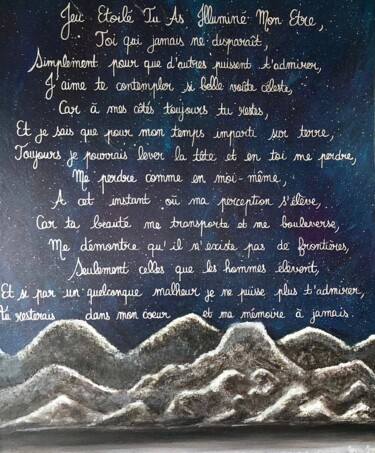 Jeu Etoilé Tu As Illuminé Mon Etre,
Toi qui jamais ne disparaît,
Simplement pour que d'autres puissent t'admirer,
J'aime te contempler si belle voûte céleste,
Car à mes côtés toujours tu restes,
Et je sais que pour mon temps imparti sur terre,
Toujours je pourrais lever la tête et en toi me perdre,
Me perdre comme en moi-même,
A cet instant où ma perception s'élève,
Car ta beauté me transporte et me bouleverse,
Me démontre qu'il n'existe pas de frontières,
Seulement celles que les hommes élèvent,
Et si par un quelconque malheur je ne puisse plus t'admirer,
Tu resterais dans mon coeur et ma mémoire à jamais.